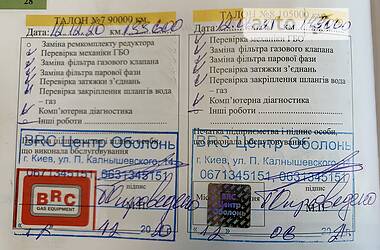 28
ТАЛОН №7 90000 км.
Дата: 12.12.20 км. 133.000
Заміна ремкомплекту редуктора
Перевірка механіки ГБО
Заміна фільтра газового клапана
Заміна фільтра парової фази
Перевірка затяжки з'єднань
Перевірка закріплення шлангів вода
– газ
Комп'ютерна діагностика
Інші роботи
BRC Центр Оболонь
що виконала обслуговування
г. Киев, ул. П. Калнышевского, 14
0671345151 0631345151
BRC
GAS EQUIPMENT
підпис
ТАЛОН №8 105000 км.
Дата:
Перевірка механіки ГБО
Заміна фільтра газового клапана
Заміна фільтра парової фази
Перевірка затяжки з'єднань
Перевірка закріплення шлангів вода
– газ
Комп'ютерна діагностика
Інші роботи
Печатка підприємства і підпис особи,
що виконала обслуговування
BRC Центр Оболонь
г. Киев, ул. П. Калнышевского
0671345151 0631345151
BRC
Центр
Оболонь
підпис